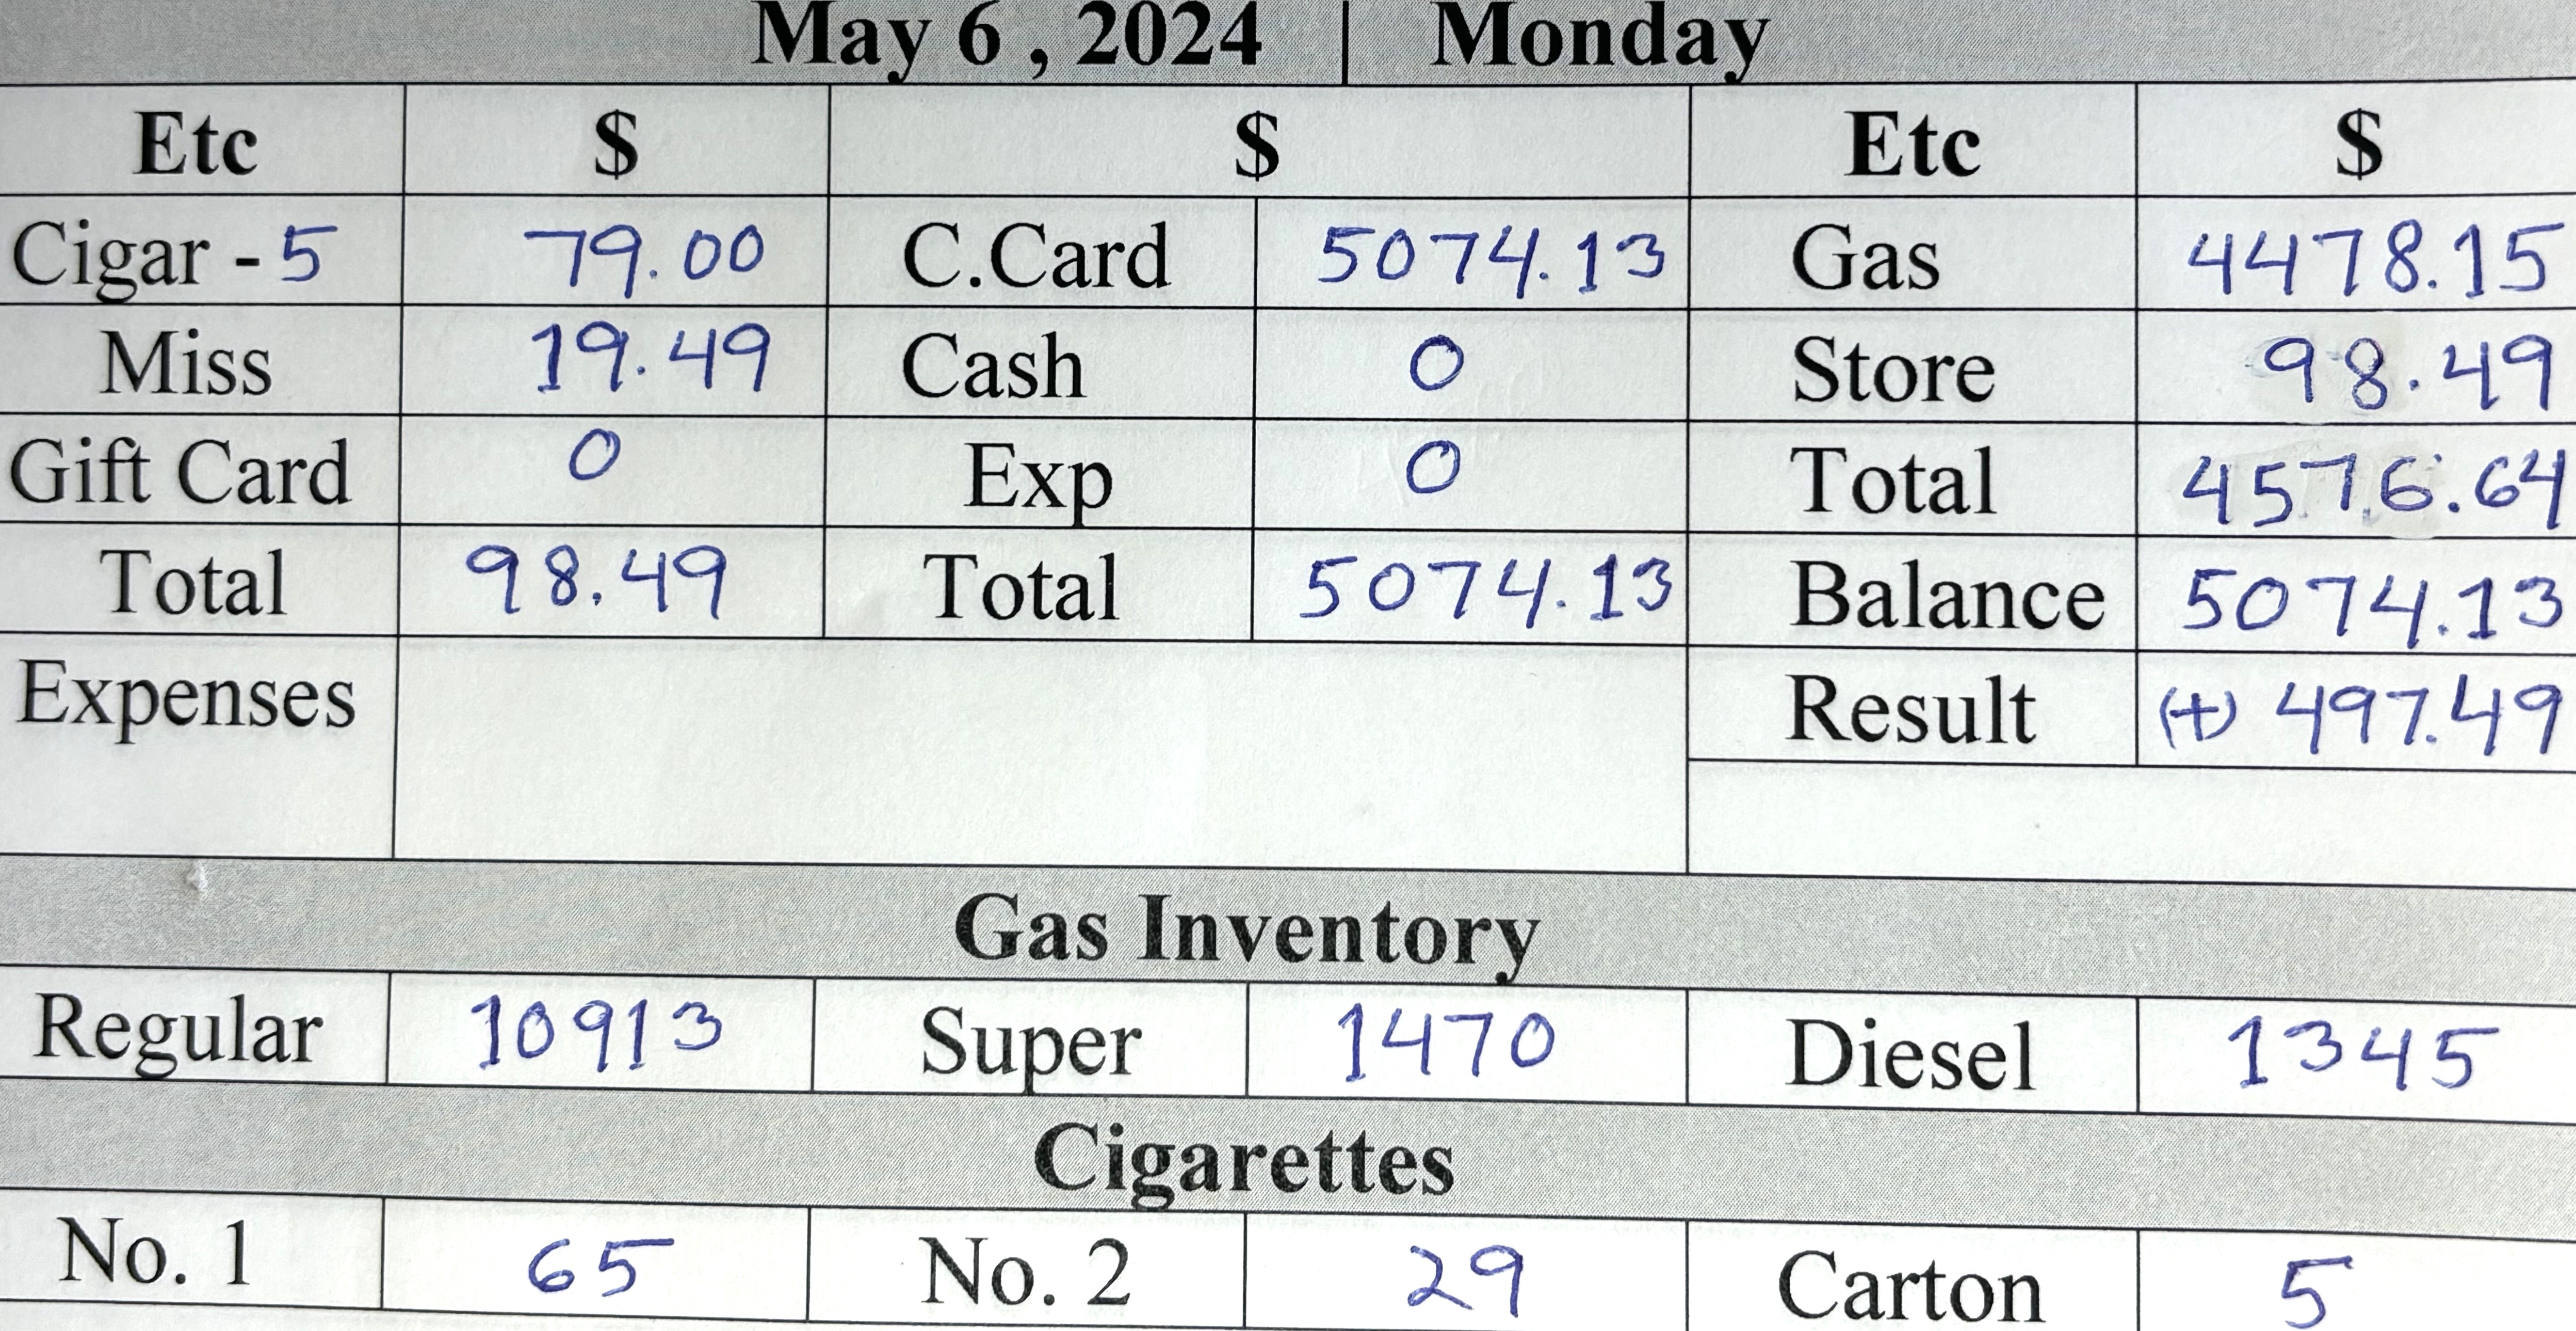 May 6 , 2024 | Monday
Etc $ $ Etc $
Cigar - 5 79.00 C.Card 5074.13 Gas 4478.15
Miss 19.49 Cash 0 Store 98.49
Gift Card 0 Exp 0 Total 4576.64
Total 98.49 Total 5074.13 Balance 5074.13
Expenses Result (+) 497.49
Gas Inventory
Regular 10913 Super 1470 Diesel 1345
Cigarettes
No. 1 65 No. 2 29 Carton 5